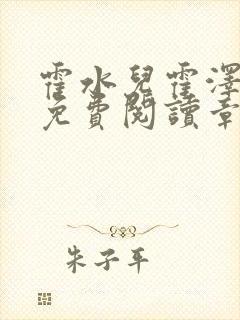 霍水兒霍澤
免費閱讀章
朱子平